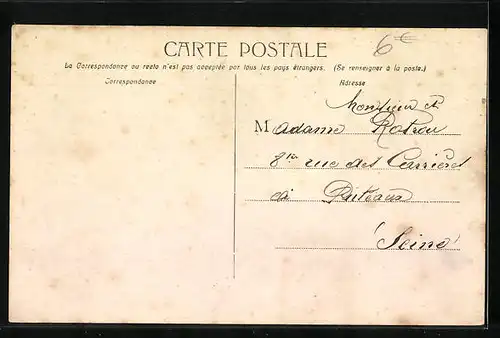 CARTE POSTALE
6€
La Correspondance au recto n'est pas acceptée par tous les pays étrangers. (Se renseigner à la poste.)
Correspondance
Adresse
Monsieur et
Madame Rotrou
rue des Carrières
à Puteaux
(Seine)